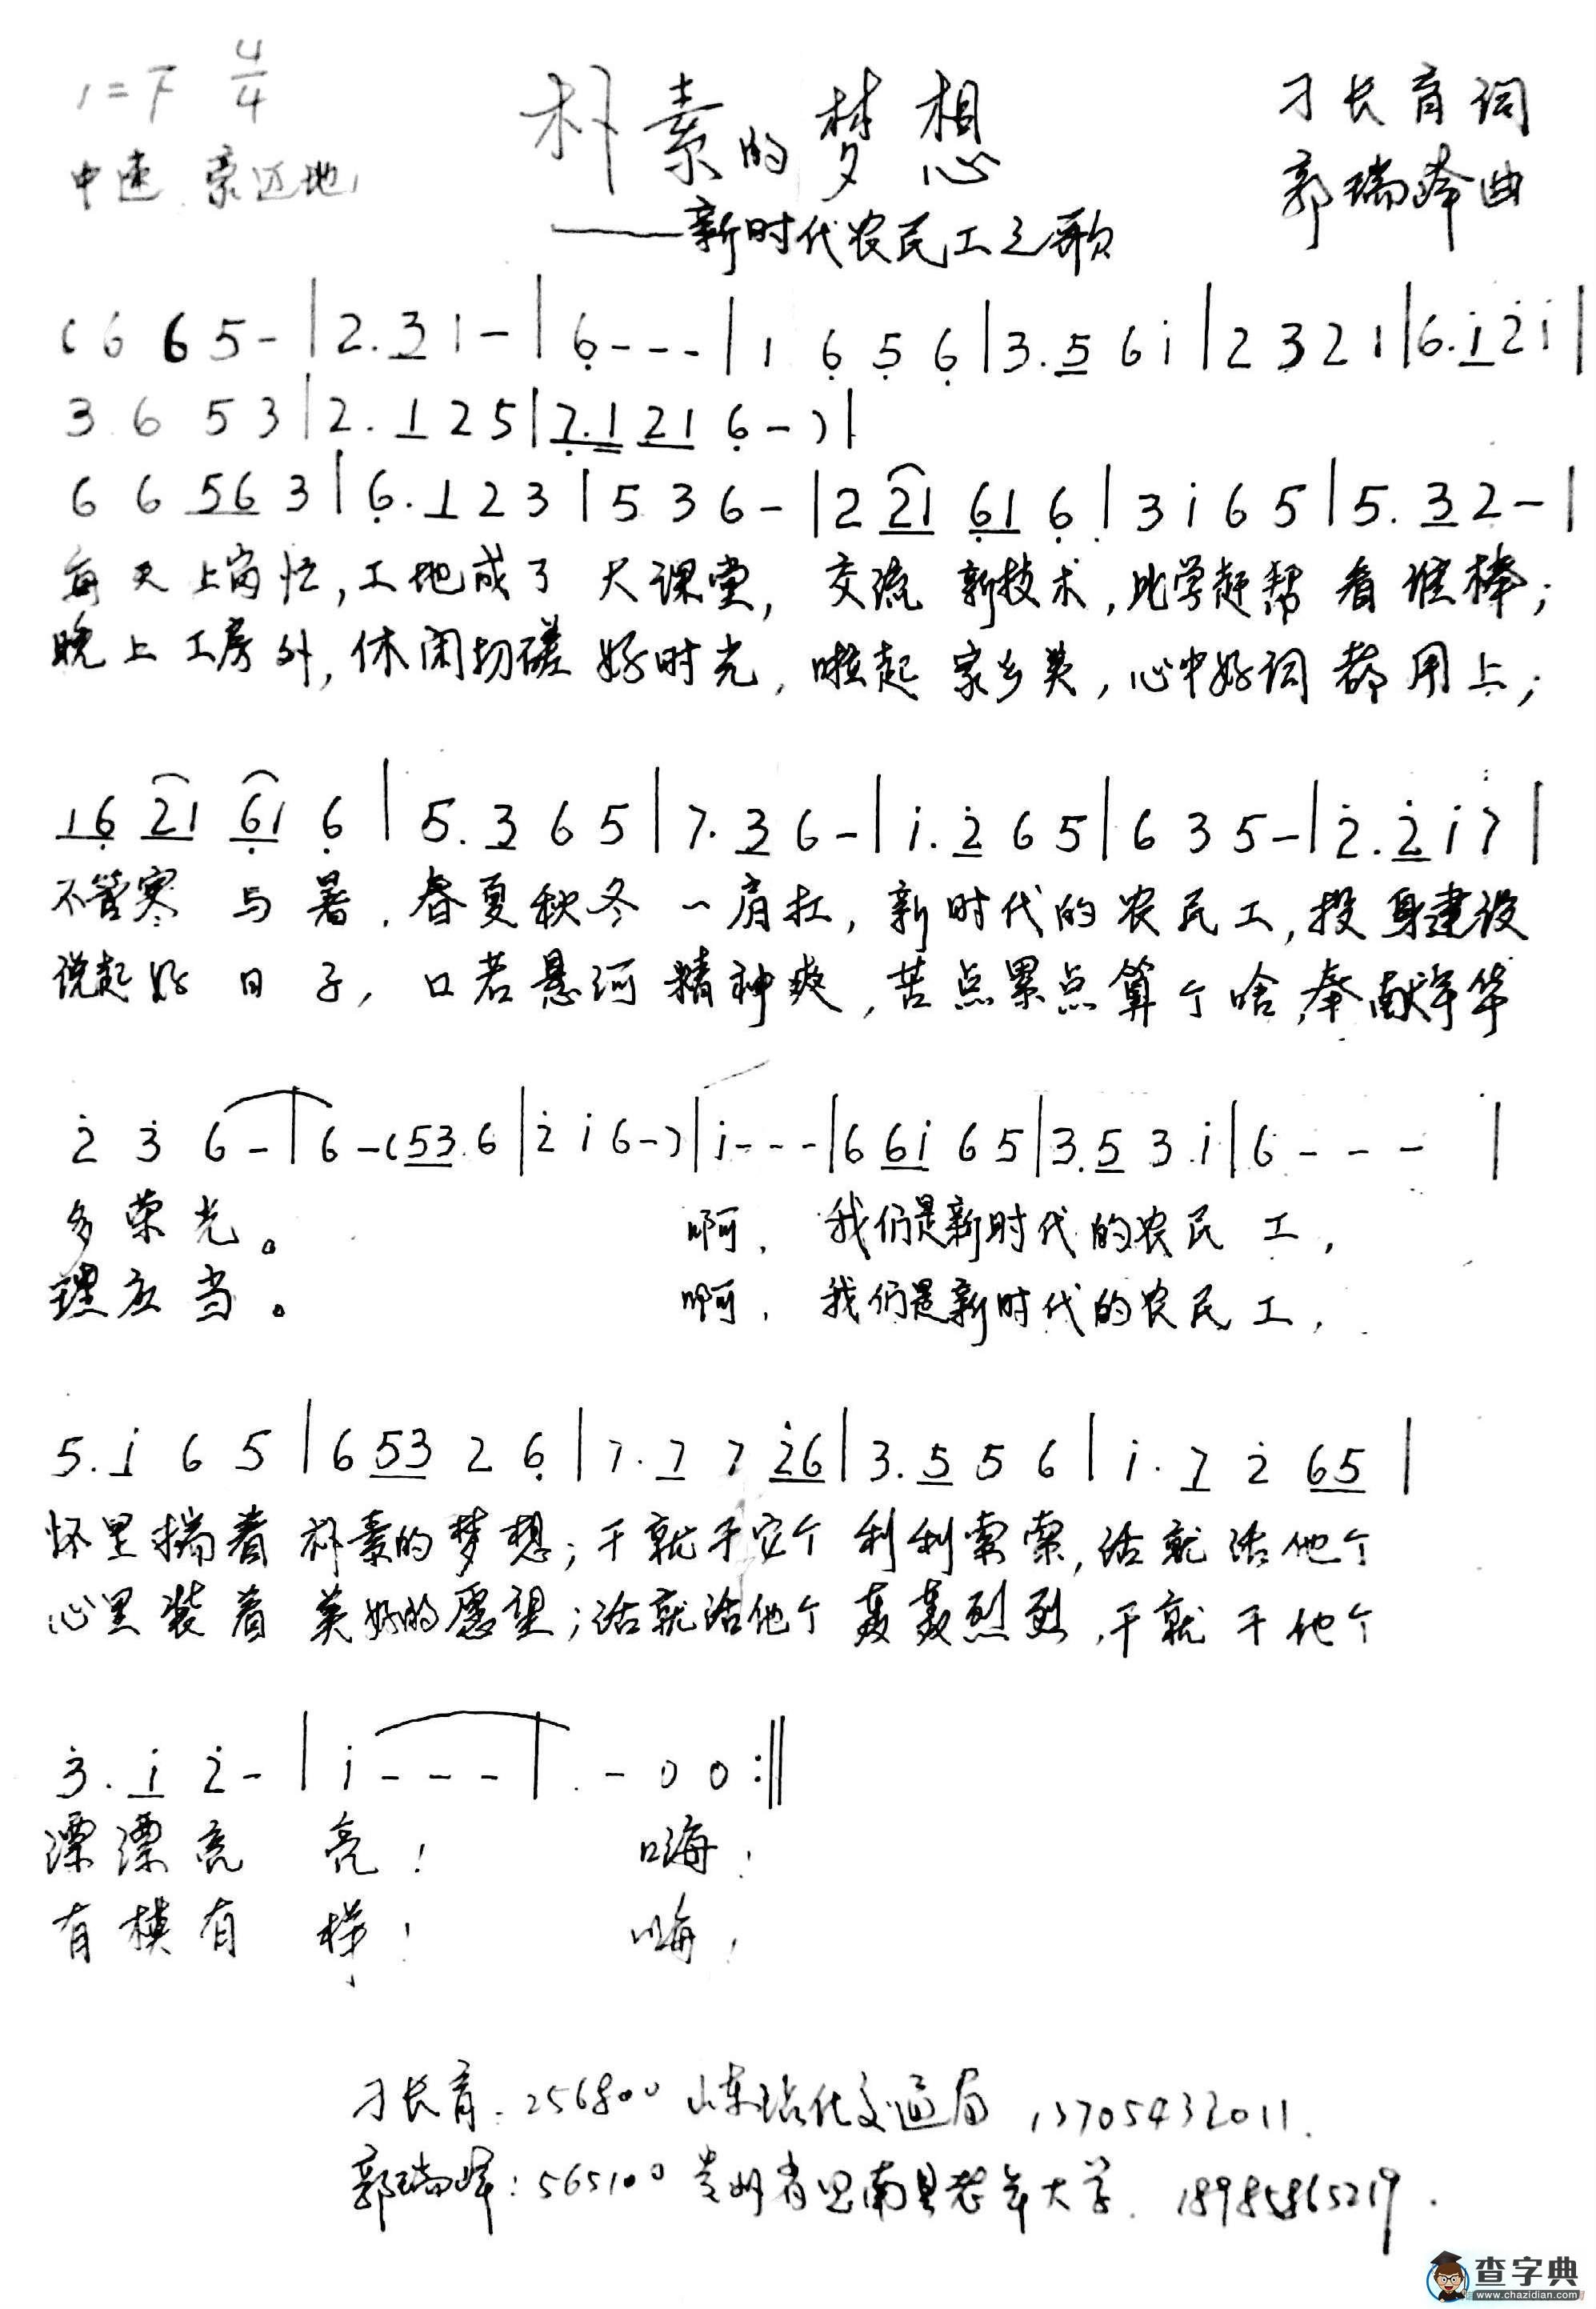 1=F 4/4
朴素的梦想
刁长育词
中速 豪迈地
——新时代农民工之歌
郭瑞峰曲
(6 6 5 - | 2. 3 1 - | 6 - - - | 1 6 5 6 | 3. 5 6 i | 2 3 2 1 | 6. i 2 i |
3 6 5 3 | 2. 1 2 5 | 7. 1 2 1 6 - ) |
6 6 56 3 | 6. 1 2 3 | 5 3 6 - | 2 21 61 6 | 3 i 6 5 | 5. 3 2 - |
每天上岗忙,工地成了大课堂,交流新技术,比学赶帮看谁棒;
晚上工房外,休闲切磋好时光,啦起家乡美,心中好词都用上;
16 21 61 6 | 5. 3 6 5 | 7. 3 6 - | i. 2 6 5 | 6 3 5 - | 2. 2 i 7 |
不管寒与暑,春夏秋冬一肩扛,新时代的农民工,投身建设
说起好日子,口若悬河精神爽,苦点累点算个啥,奉献年华
2 3 6 - | 6 - (53 6 | 2 i 6 - ) | i - - - | 6 6i 6 5 | 3. 5 3 i | 6 - - - |
多荣光。 啊, 我们是新时代的农民工,
理应当。 啊, 我们是新时代的农民工,
5. i 6 5 | 6 53 2 6 | 7. 7 7 26 | 3. 5 5 6 | i. 7 2 65 |
怀里揣着朴素的梦想;干就干它个利利索索,活就活他个
心里装着美好的愿望;活就活他个轰轰烈烈,干就干他个
3. i 2 - | i - - - | - 0 0 :||
漂漂亮亮! 嗨!
有模有样! 嗨!
刁长育:256800 山东沾化交通局 13705432011.
郭瑞峰:565100 贵州省思南县老年大学. 18985865219.
查字典
www.chazidian.com